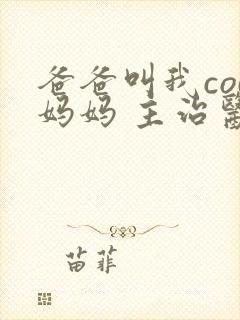 爸爸叫我co
妈妈 主治医
苗菲